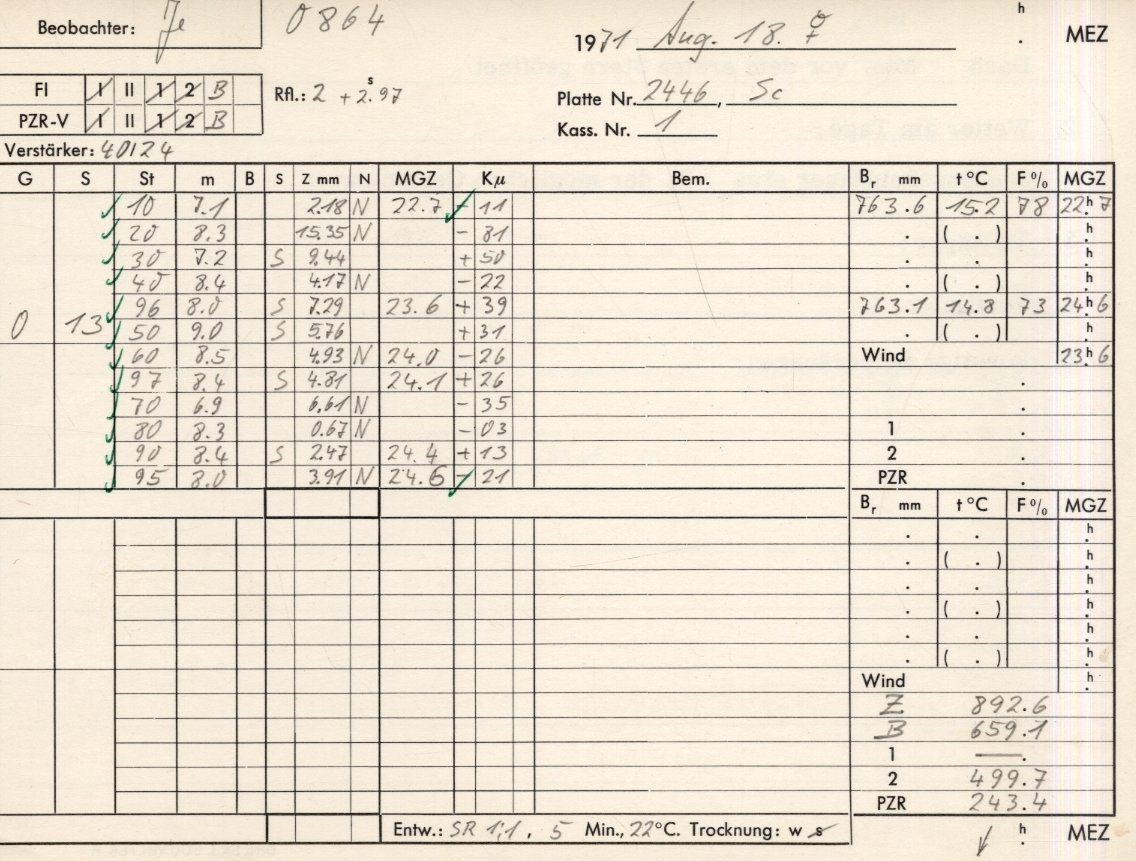 Beobachter: Je 0864 h
1971 Aug. 18. ☿ . MEZ
FI I II 1 2 B Rfl.: 2 + 2.97 s
Platte Nr. 2446, Sc
PZR-V I II 1 2 B
Kass. Nr. 1
Verstärker: 40124
G S St m B S Z mm N MGZ Kμ Bem. Br mm t °C F % MGZ
10 7.1 2.18 N 22.7 - 11 763.6 15.2 78 22h.7
20 8.3 15.35 N - 81 . ( . ) h.
30 7.2 S 9.44 + 50 . . h.
40 8.4 4.17 N - 22 . ( . ) h.
96 8.0 S 7.29 23.6 + 39 763.1 14.8 73 24h.6
0 13 50 9.0 S 5.76 + 31 . ( . ) h.
60 8.5 4.93 N 24.0 - 26 Wind 23h.6
97 8.4 S 4.81 24.1 + 26 .
70 6.9 6.61 N - 35 .
80 8.3 0.67 N - 03 1 .
90 8.4 S 2.47 24.4 + 13 2 .
95 8.0 3.91 N 24.6 - 21 PZR .
Br mm t °C F % MGZ
. . h.
. ( . ) h.
. . h.
. ( . ) h.
. . h.
. ( . ) h.
Wind h.
Z 892.6
B 659.1
1 — .
2 499.7
PZR 243.4
Entw.: SR 1:1, 5 Min., 22°C. Trocknung: w s
h . MEZ